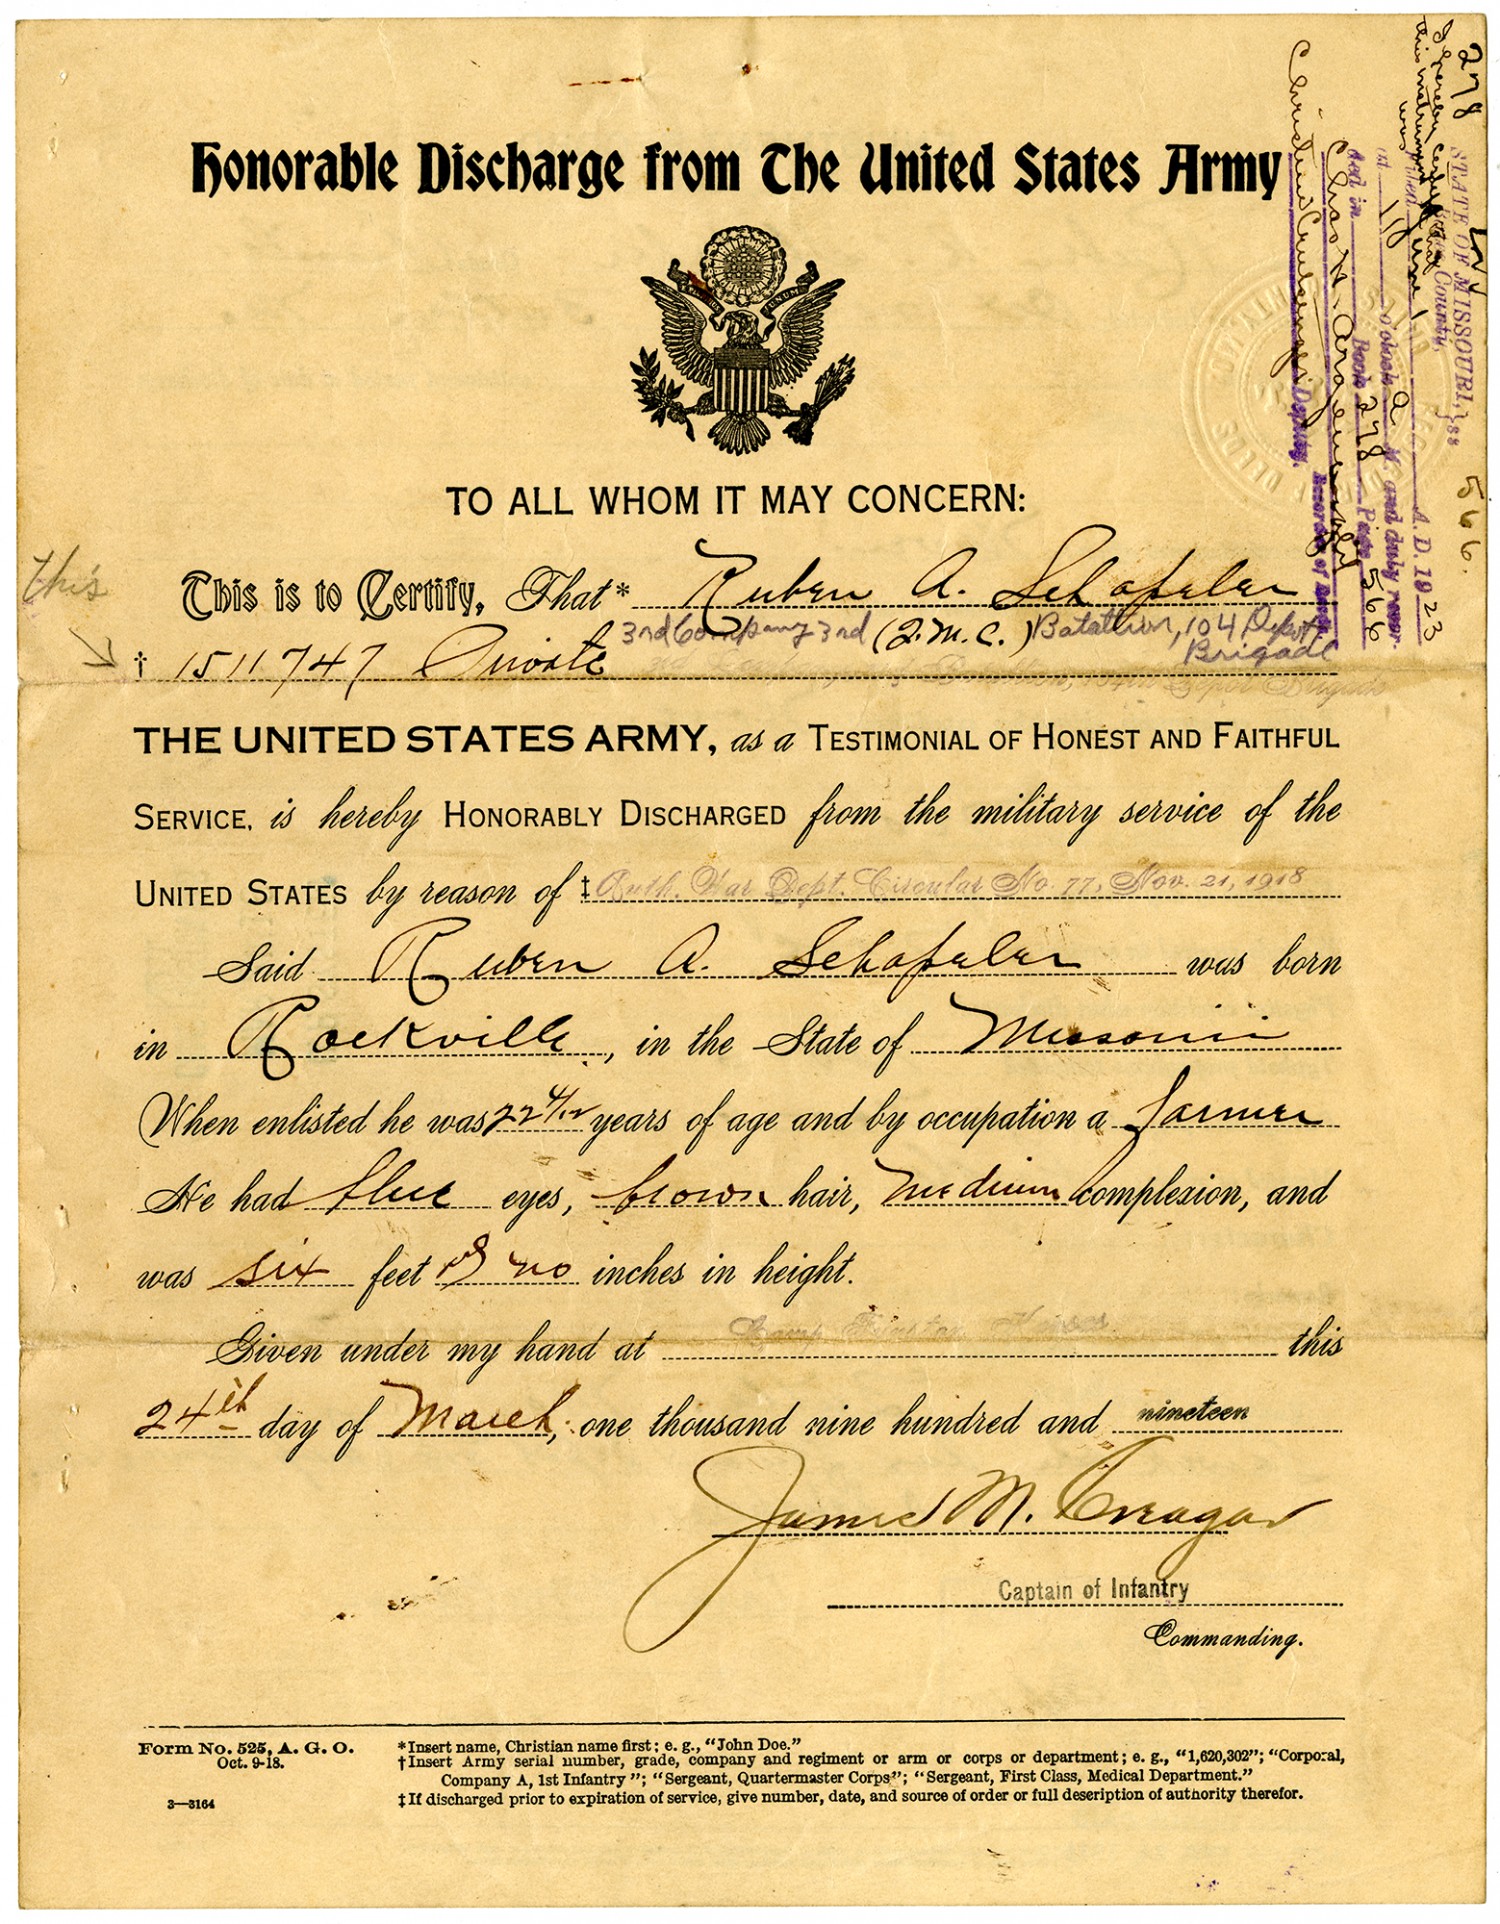 Honorable Discharge from The United States Army
TO ALL WHOM IT MAY CONCERN:
this
This is to Certify, That* Ruben A. Schapeler
3rd Company 3rd (Q.M.C.) Batallion, 104 Depot
Brigade
† 1511747 Private
THE UNITED STATES ARMY, as a TESTIMONIAL OF HONEST AND FAITHFUL
SERVICE, is hereby HONORABLY DISCHARGED from the military service of the
UNITED STATES by reason of ‡ Auth. War Dept. Circular No. 77, Nov. 21, 1918
Said Ruben A. Schapeler was born
in Rockville, in the State of Missouri
When enlisted he was 22 4/12 years of age and by occupation a farmer
He had blue eyes, brown hair, Medium complexion, and
was six feet & no inches in height.
Given under my hand at Camp Funston Kansas this
24th day of March, one thousand nine hundred and nineteen
James M. Creagar
Captain of Infantry
Commanding.
Form No. 525, A. G. O.
Oct. 9-18.
3—3164
*Insert name, Christian name first; e. g., "John Doe."
†Insert Army serial number, grade, company and regiment or arm or corps or department; e. g., "1,620,302"; "Corporal,
Company A, 1st Infantry"; "Sergeant, Quartermaster Corps"; "Sergeant, First Class, Medical Department."
‡If discharged prior to expiration of service, give number, date, and source of order or full description of authority therefor.
278 566.
STATE OF MISSOURI, } ss
County,
I hereby certify that
this instrument was filed June 1 A. D. 1923
at 10 o'clock A M. and duly recor-
ded in Book 278 Page 566
Recorder of Deeds
Deputy.